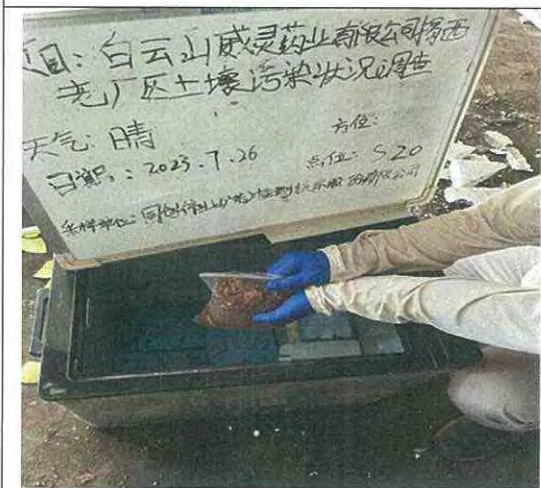 项目：白云山威灵药业有限公司揭西
老厂区土壤污染状况调查
天气：晴
方位：
日期：2023.7.26
点位：S20
采样单位：同创伟业（广东）检测技术股份有限公司